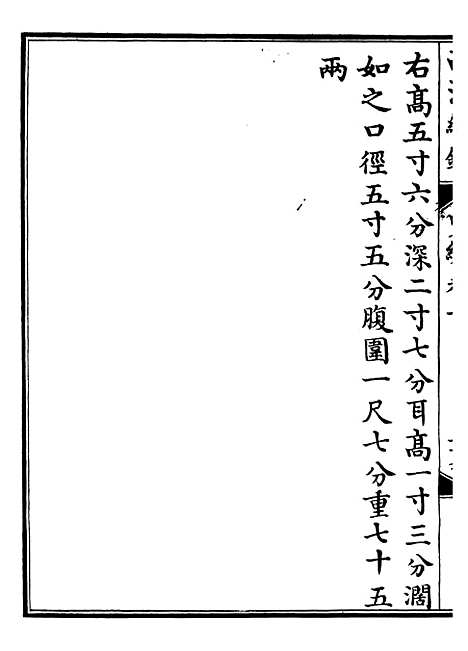 右高五寸六分深二寸七分耳高一寸三分濶
如之口徑五寸五分腹圍一尺七分重七十五
兩